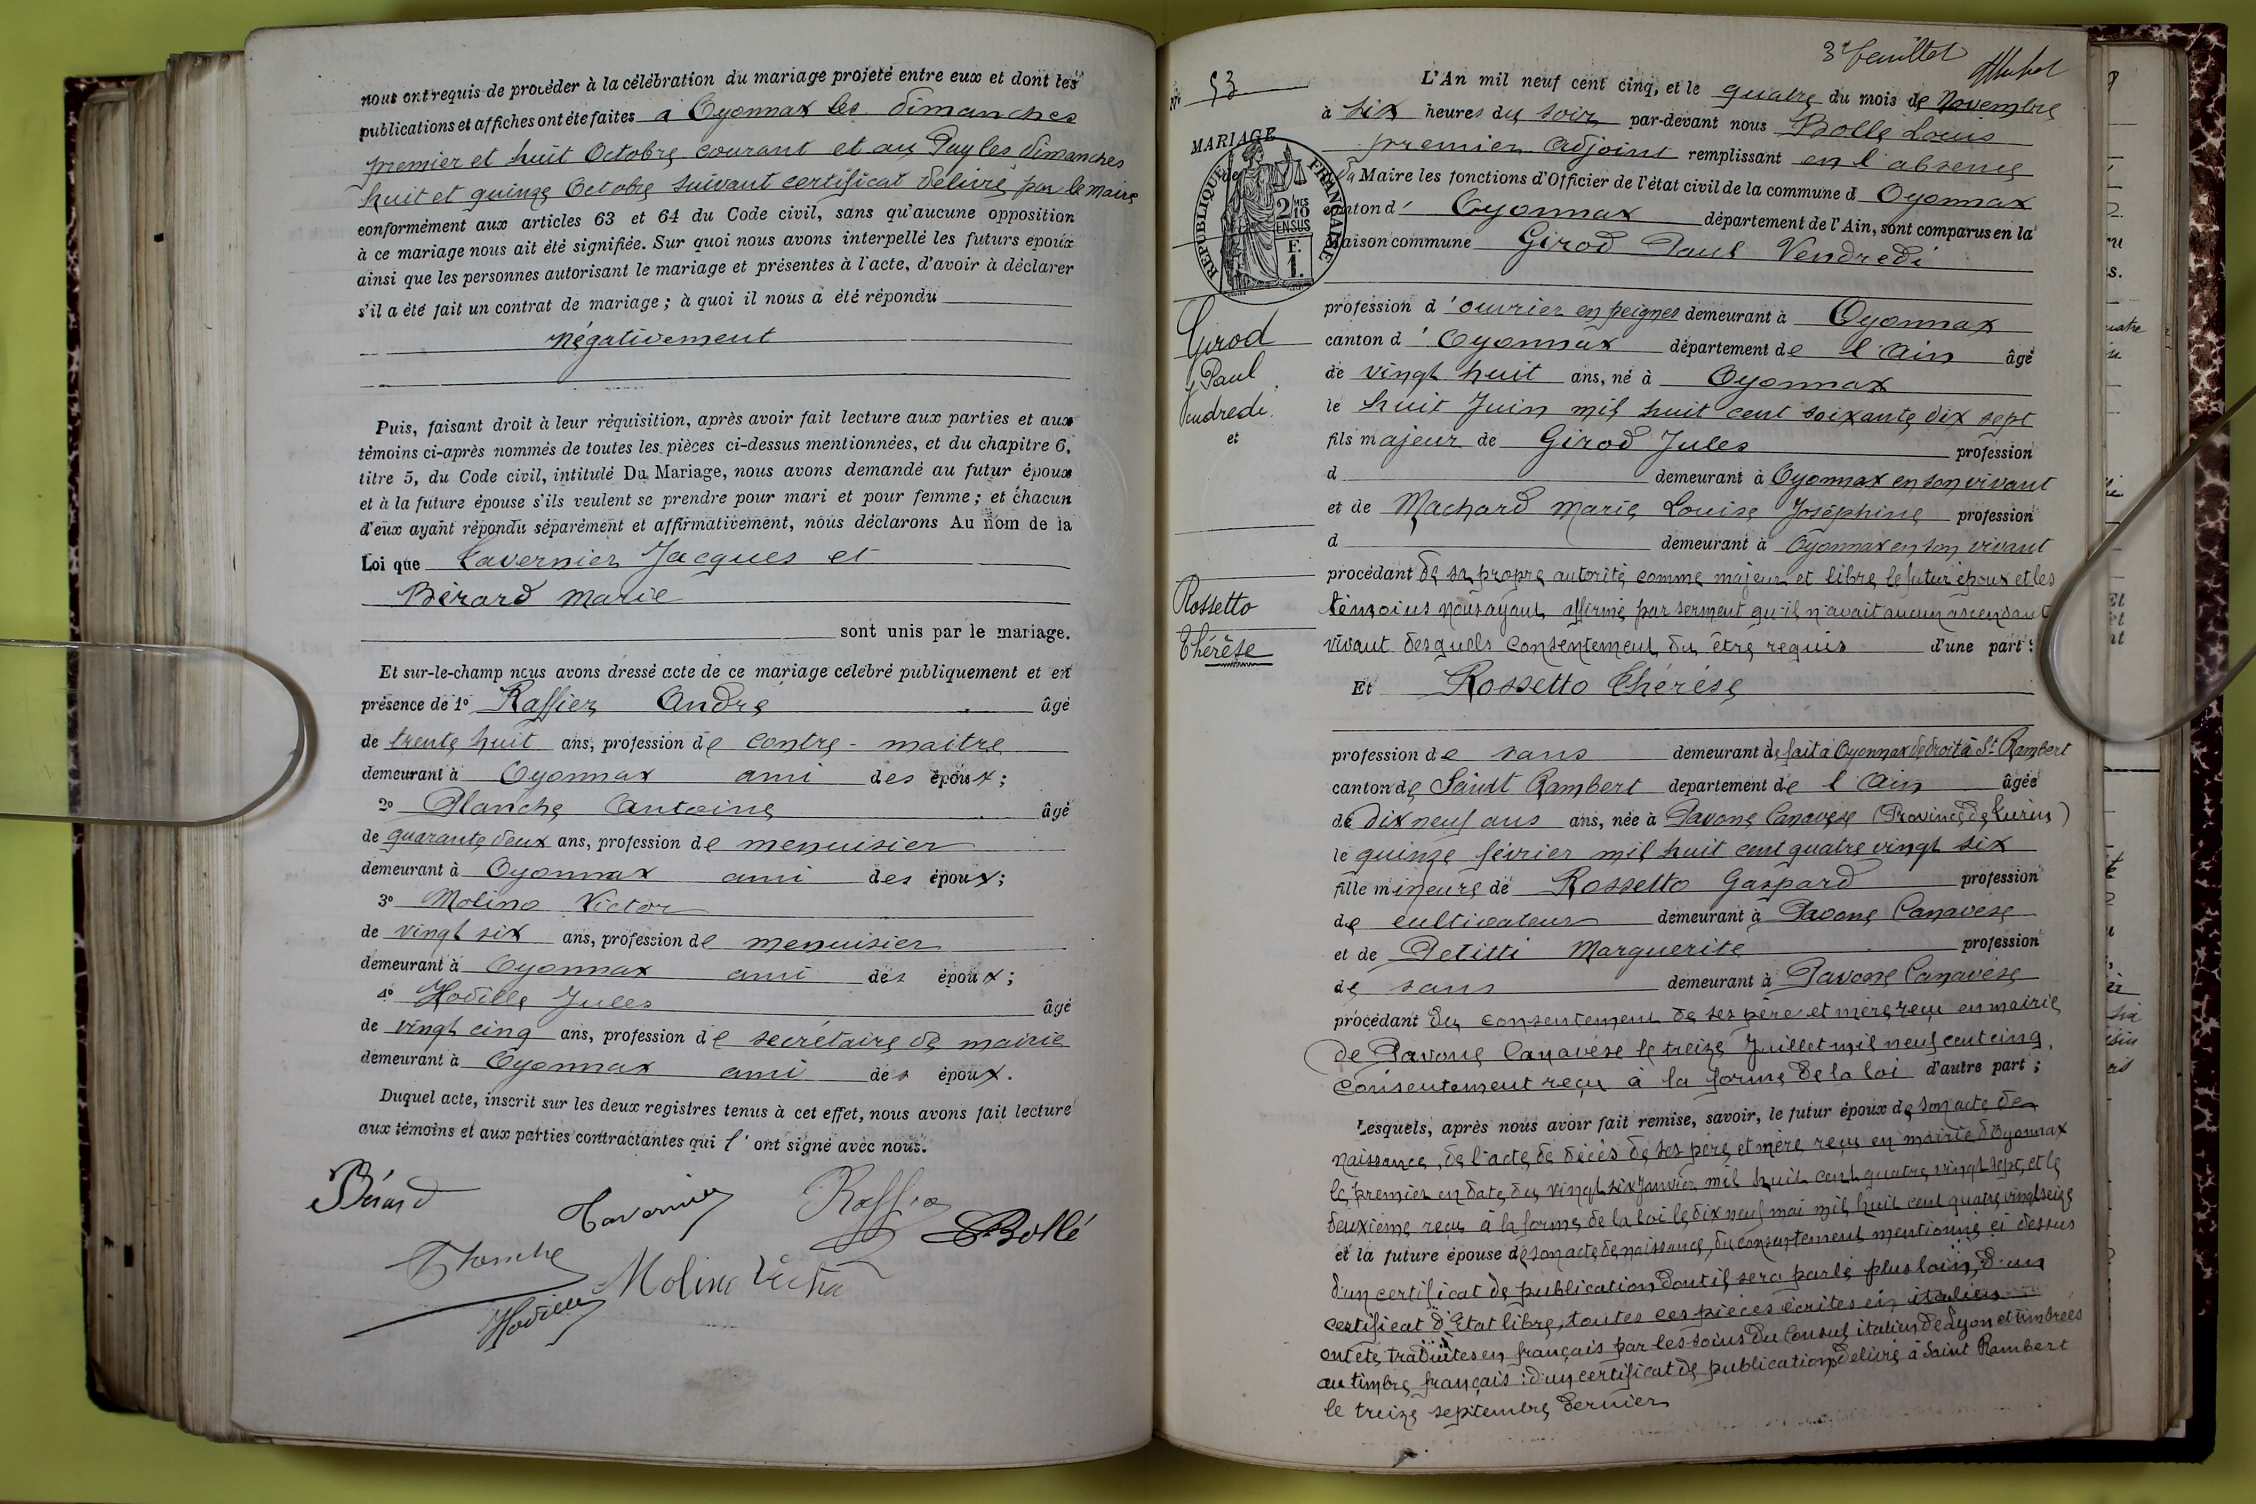 nous ont requis de procéder à la célébration du mariage projeté entre eux et dont les
publications et affiches ont été faites à Oyonnax les dimanches
premier et huit Octobre courant et au Puy les dimanches
huit et quinze Octobre suivant certificat délivré par le maire
conformément aux articles 63 et 64 du Code civil, sans qu'aucune opposition
à ce mariage nous ait été signifiée. Sur quoi nous avons interpellé les futurs époux
ainsi que les personnes autorisant le mariage et présentes à l'acte, d'avoir à déclarer
s'il a été fait un contrat de mariage ; à quoi il nous a été répondu
négativement
Puis, faisant droit à leur réquisition, après avoir fait lecture aux parties et aux
témoins ci-après nommés de toutes les pièces ci-dessus mentionnées, et du chapitre 6,
titre 5, du Code civil, intitulé Du Mariage, nous avons demandé au futur époux
et à la future épouse s'ils veulent se prendre pour mari et pour femme ; et chacun
d'eux ayant répondu séparément et affirmativement, nous déclarons Au nom de la
Loi que Tavernier Jacques et
Bérard Marie
sont unis par le mariage.
Et sur-le-champ nous avons dressé acte de ce mariage célébré publiquement et en
présence de 1º Raffier André âgé
de trente huit ans, profession de contre-maitre
demeurant à Oyonnax ami des époux ;
2º Planche Antoine âgé
de quarante deux ans, profession de menuisier
demeurant à Oyonnax ami des époux ;
3º Molino Victor
de vingt six ans, profession de menuisier
demeurant à Oyonnax ami des époux ;
4º Hodille Jules âgé
de vingt cinq ans, profession de secrétaire de mairie
demeurant à Oyonnax ami des époux.
Duquel acte, inscrit sur les deux registres tenus à cet effet, nous avons fait lecture
aux témoins et aux parties contractantes qui l'ont signé avec nous.
Bérard Tavernier Raffier Bollé
Planche Molino Victor
Hodille
3e feuillet
Nº 53
MARIAGE
de
RÉPUBLIQUE FRANÇAISE
2/10 MES
EN SUS
F.
1.
Girod
Paul
Vendredi
et
Rossetto
Thérèse
L'An mil neuf cent cinq, et le quatre du mois de Novembre
à six heures du soir par-devant nous Bolle Louis
premier Adjoint remplissant en l'absence
du Maire les fonctions d'Officier de l'état civil de la commune d Oyonnax
canton d' Oyonnax département de l'Ain, sont comparus en la
maison commune Girod Paul Vendredi
profession d'ouvrier en peignes demeurant à Oyonnax
canton d'Oyonnax département de l'Ain âgé
de vingt huit ans, né à Oyonnax
le huit Juin mil huit cent soixante dix sept
fils majeur de Girod Jules profession
d demeurant à Oyonnax en son vivant
et de Machard Marie Louise Joséphine profession
d demeurant à Oyonnax en son vivant
procédant de sa propre autorité comme majeur et libre le futur époux et les
témoins nous ayant affirmé par serment qu'il n'avait aucun ascendant
vivant desquels consentement du être requis d'une part :
Et Rossetto Thérèse
profession de sans demeurant de fait à Oyonnax de droit à St Rambert
canton de Saint Rambert département de l'Ain âgée
de dix neuf ans ans, née à Pavone Canavese (Province de Turin)
le quinze février mil huit cent quatre vingt six
fille mineure de Rossetto Gaspard profession
de cultivateur demeurant à Pavone Canavese
et de Petitti Marguerite profession
de sans demeurant à Pavone Canavèse
procédant du consentement de ses père et mère reçu en mairie
de Pavone Canavèse le treize Juillet mil neuf cent cinq,
consentement reçu à la forme de la loi d'autre part ;
Lesquels, après nous avoir fait remise, savoir, le futur époux de son acte de
naissance, de l'acte de décès de ses père et mère reçu en mairie d'Oyonnax
le premier en date du vingt six Janvier mil huit cent quatre vingt sept, et le
deuxième reçu à la forme de la loi le dix neuf mai mil huit cent quatre vingt seize
et la future épouse de son acte de naissance, du consentement mentionné ci dessus
d'un certificat de publication dont il sera parlé plus loin, d'un
certificat d'Etat libre, toutes ces pièces écrites en italien
ont été traduites en français par les soins du Consul italien de Lyon et timbrées
au timbre français : d'un certificat de publication délivré à Saint Rambert
le treize septembre dernier